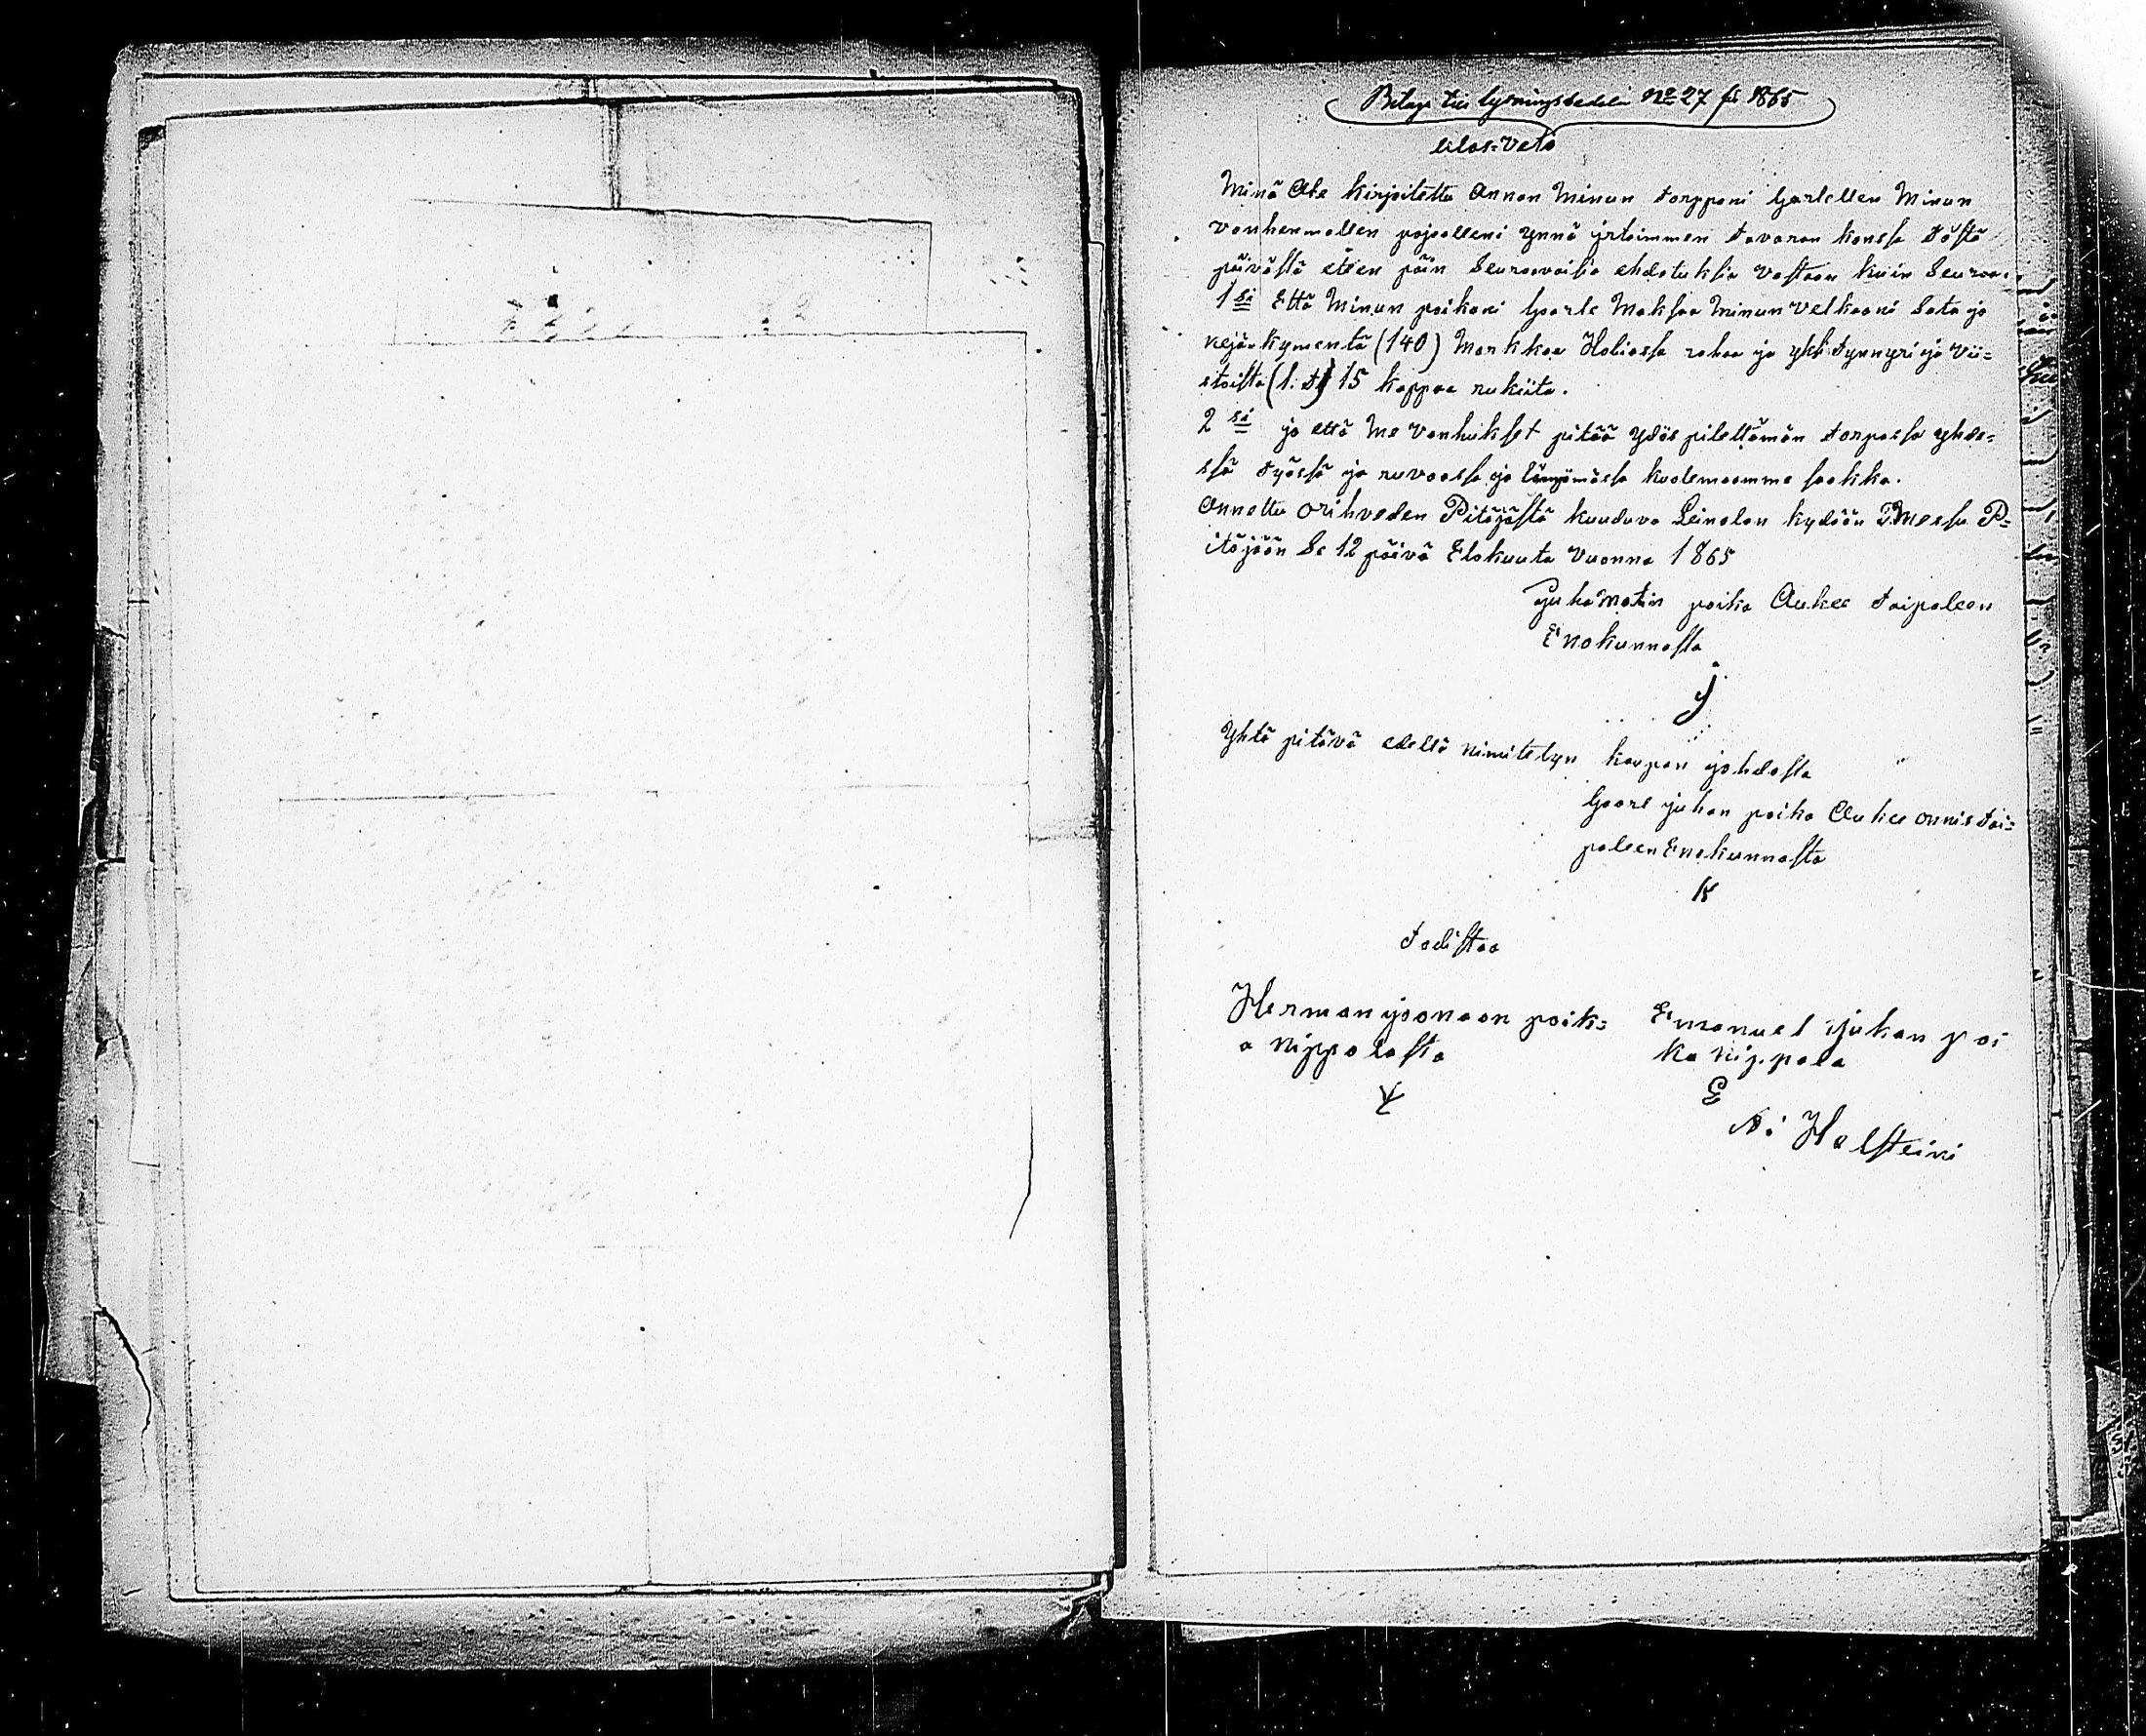 Bilaga till lysningssedeln No 27 för 1865
Ulos-Veto
Minä Ala kirjoitettu Annan Minun torpponi kaarlellen Minun
vanhenmallen pojoalleni ynnä irtoimmen tavaran kanssa tästä
päivästä eteen päin Seuraavaisia ehdotuksia vastaan kuin Seuraa:
1 si Että Minun poikani kaarle Maksaa Minun velkaani Sata ja
neljä-kymentä (140) Markkaa Hobiassa rahaa ja yksi tynnyri ja vii=
stoista (1. t) 15 kappaa rukiita.
2 si ja että me vanhukset pitää ylös pitettämän torpassa yhde=
ssä työssä ja ruvoassa ja lämpimässä kuolemaamme saakka.
Annettu Orihveden Pitäjästä kuuduva Leinolan kylään Messu P=
itäjään Se 12 päivä Elokuuta Vuonna 1865
Juha Matin poika Aukee taipaleen
Enokunnasta
J
Yhtä pitävä edellä nimitetyn kaupan johdosta
kaarl juhan poika Aukee onnistai=
paleen Enokunnasta
K
todistaa
Herman joonaan poik=
a nippolasta
Emanuel juhan poi
ka nippala
E
Ni Halsteini